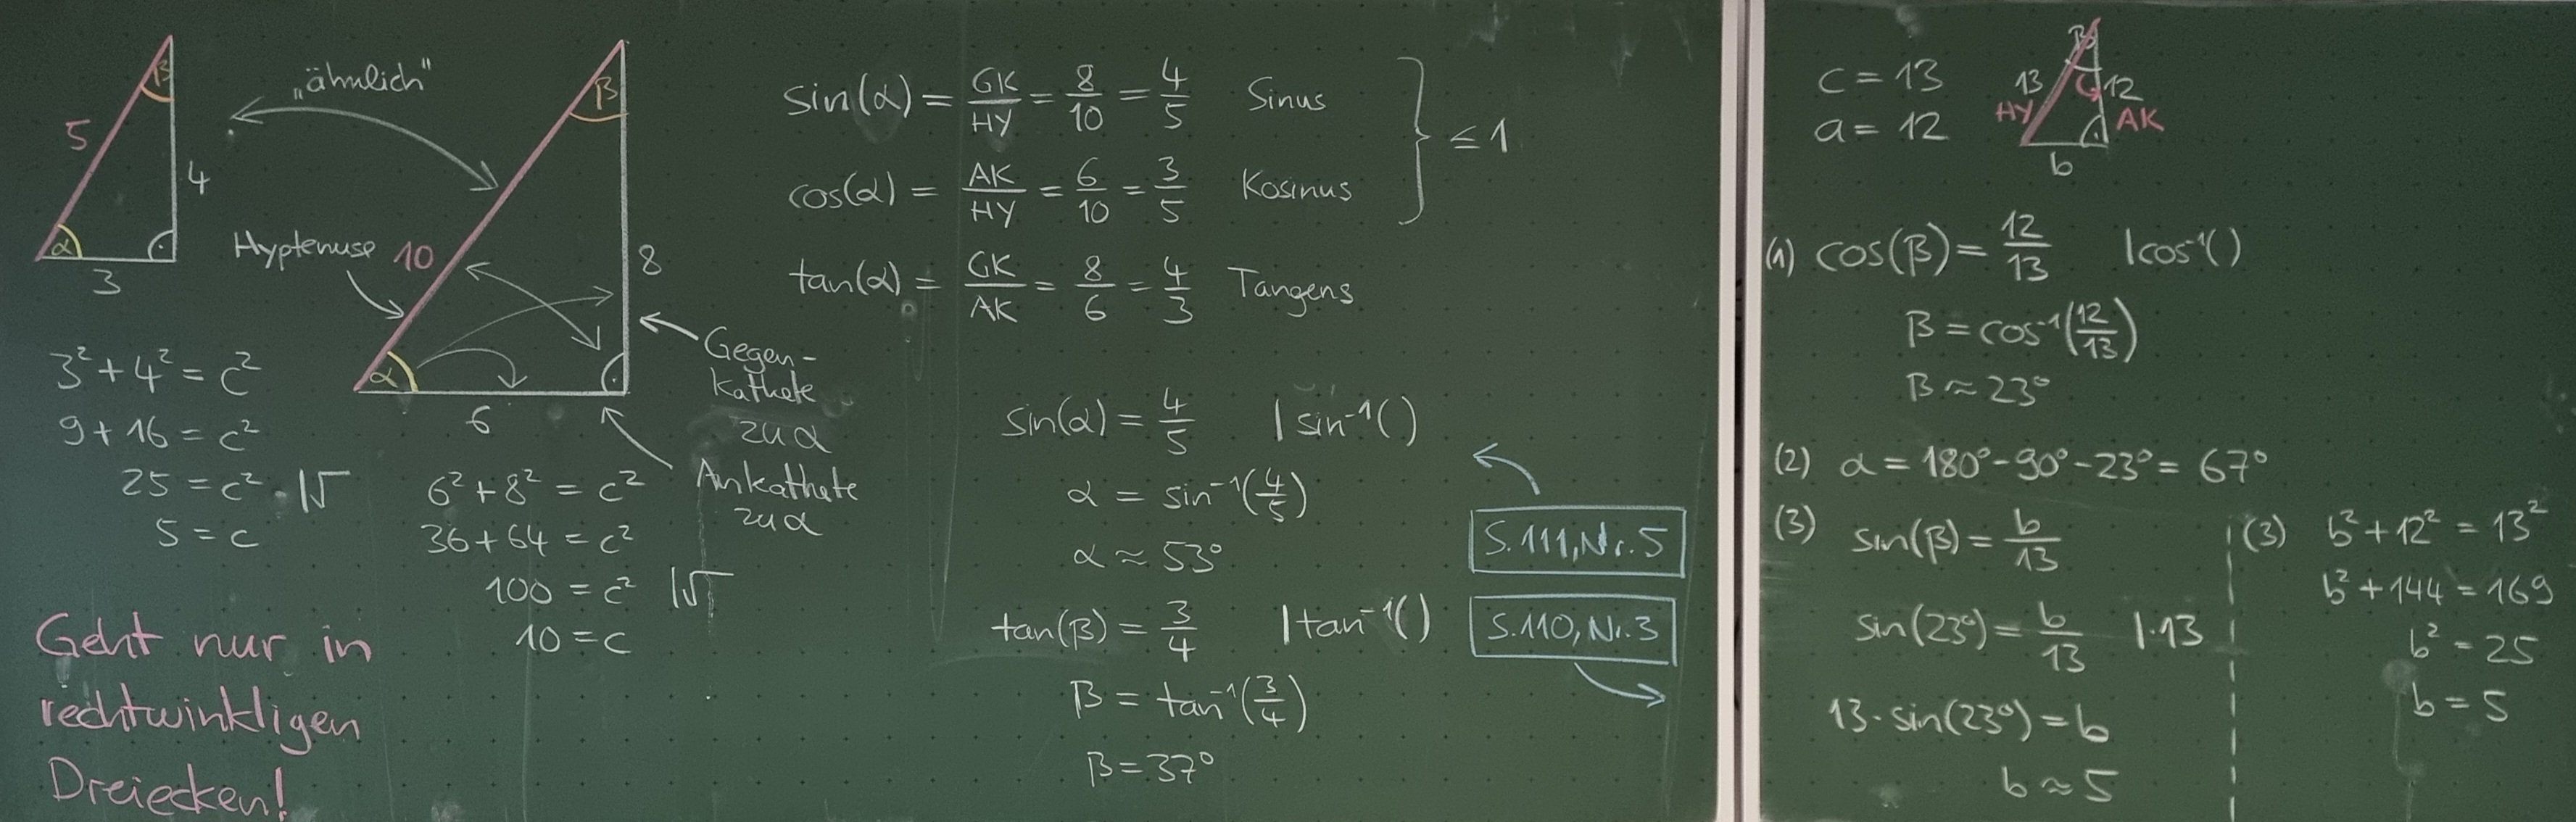 β
5
4
α
3
„ähnlich“
β
Hyptenuse 10
8
α
6
Gegen-
kathete
zu α
Ankathete
zu α
3² + 4² = c²
9 + 16 = c²
25 = c² |√
5 = c
6² + 8² = c²
36 + 64 = c²
100 = c² |√
10 = c
Geht nur in
rechtwinkligen
Dreiecken!
sin(α) = GK/HY = 8/10 = 4/5 Sinus
cos(α) = AK/HY = 6/10 = 3/5 Kosinus
} ≤ 1
tan(α) = GK/AK = 8/6 = 4/3 Tangens
sin(α) = 4/5 | sin⁻¹()
α = sin⁻¹(4/5)
α ≈ 53°
tan(β) = 3/4 | tan⁻¹()
β = tan⁻¹(3/4)
β = 37°
S.111, Nr. 5
S.110, Nr. 3
c = 13
a = 12
β
13
12
HY
AK
b
(1) cos(β) = 12/13 | cos⁻¹()
β = cos⁻¹(12/13)
β ≈ 23°
(2) α = 180° - 90° - 23° = 67°
(3) sin(β) = b/13
sin(23°) = b/13 | · 13
13 · sin(23°) = b
b ≈ 5
(3) b² + 12² = 13²
b² + 144 = 169
b² = 25
b = 5